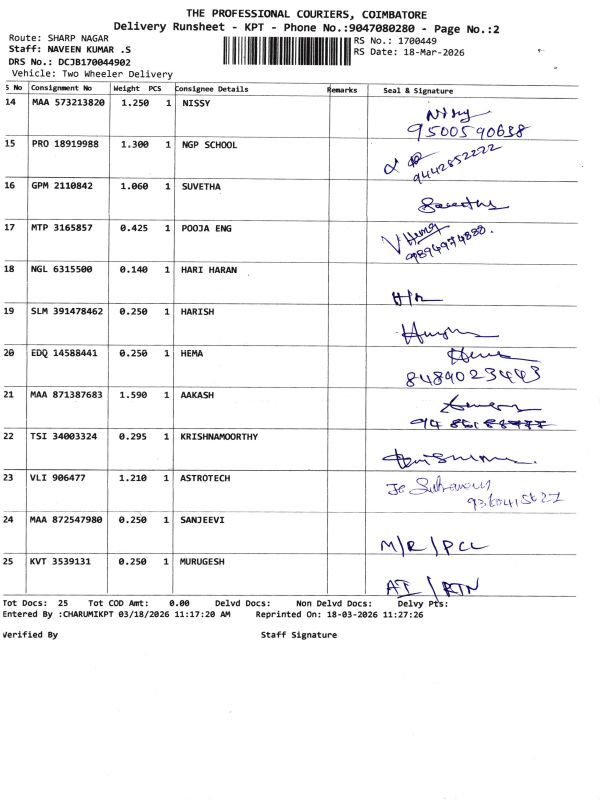 THE PROFESSIONAL COURIERS, COIMBATORE
Delivery Runsheet - KPT - Phone No.:9047080280 - Page No.:2
Route: SHARP NAGAR
RS No.: 1700449
Staff: NAVEEN KUMAR .S
RS Date: 18-Mar-2026
DRS No.: DCJB170044902
Vehicle: Two Wheeler Delivery
S No Consignment No Weight PCS Consignee Details Remarks Seal & Signature
14 MAA 573213820 1.250 1 NISSY
Nissy
9500590638
15 PRO 18919988 1.300 1 NGP SCHOOL
9442852222
16 GPM 2110842 1.060 1 SUVETHA
17 MTP 3165857 0.425 1 POOJA ENG
V Hema
9894974888.
18 NGL 6315500 0.140 1 HARI HARAN
H/R
19 SLM 391478462 0.250 1 HARISH
20 EDQ 14588441 0.250 1 HEMA
Hema
8489023443
21 MAA 871387683 1.590 1 AAKASH
22 TSI 34003324 0.295 1 KRISHNAMOORTHY
23 VLI 906477 1.210 1 ASTROTECH
24 MAA 872547980 0.250 1 SANJEEVI
M/R/PCL
25 KVT 3539131 0.250 1 MURUGESH
AI / RTN
Tot Docs: 25 Tot COD Amt: 0.00 Delvd Docs: Non Delvd Docs: Delvy Pts:
Entered By :CHARUMIKPT 03/18/2026 11:17:20 AM Reprinted On: 18-03-2026 11:27:26
Verified By Staff Signature